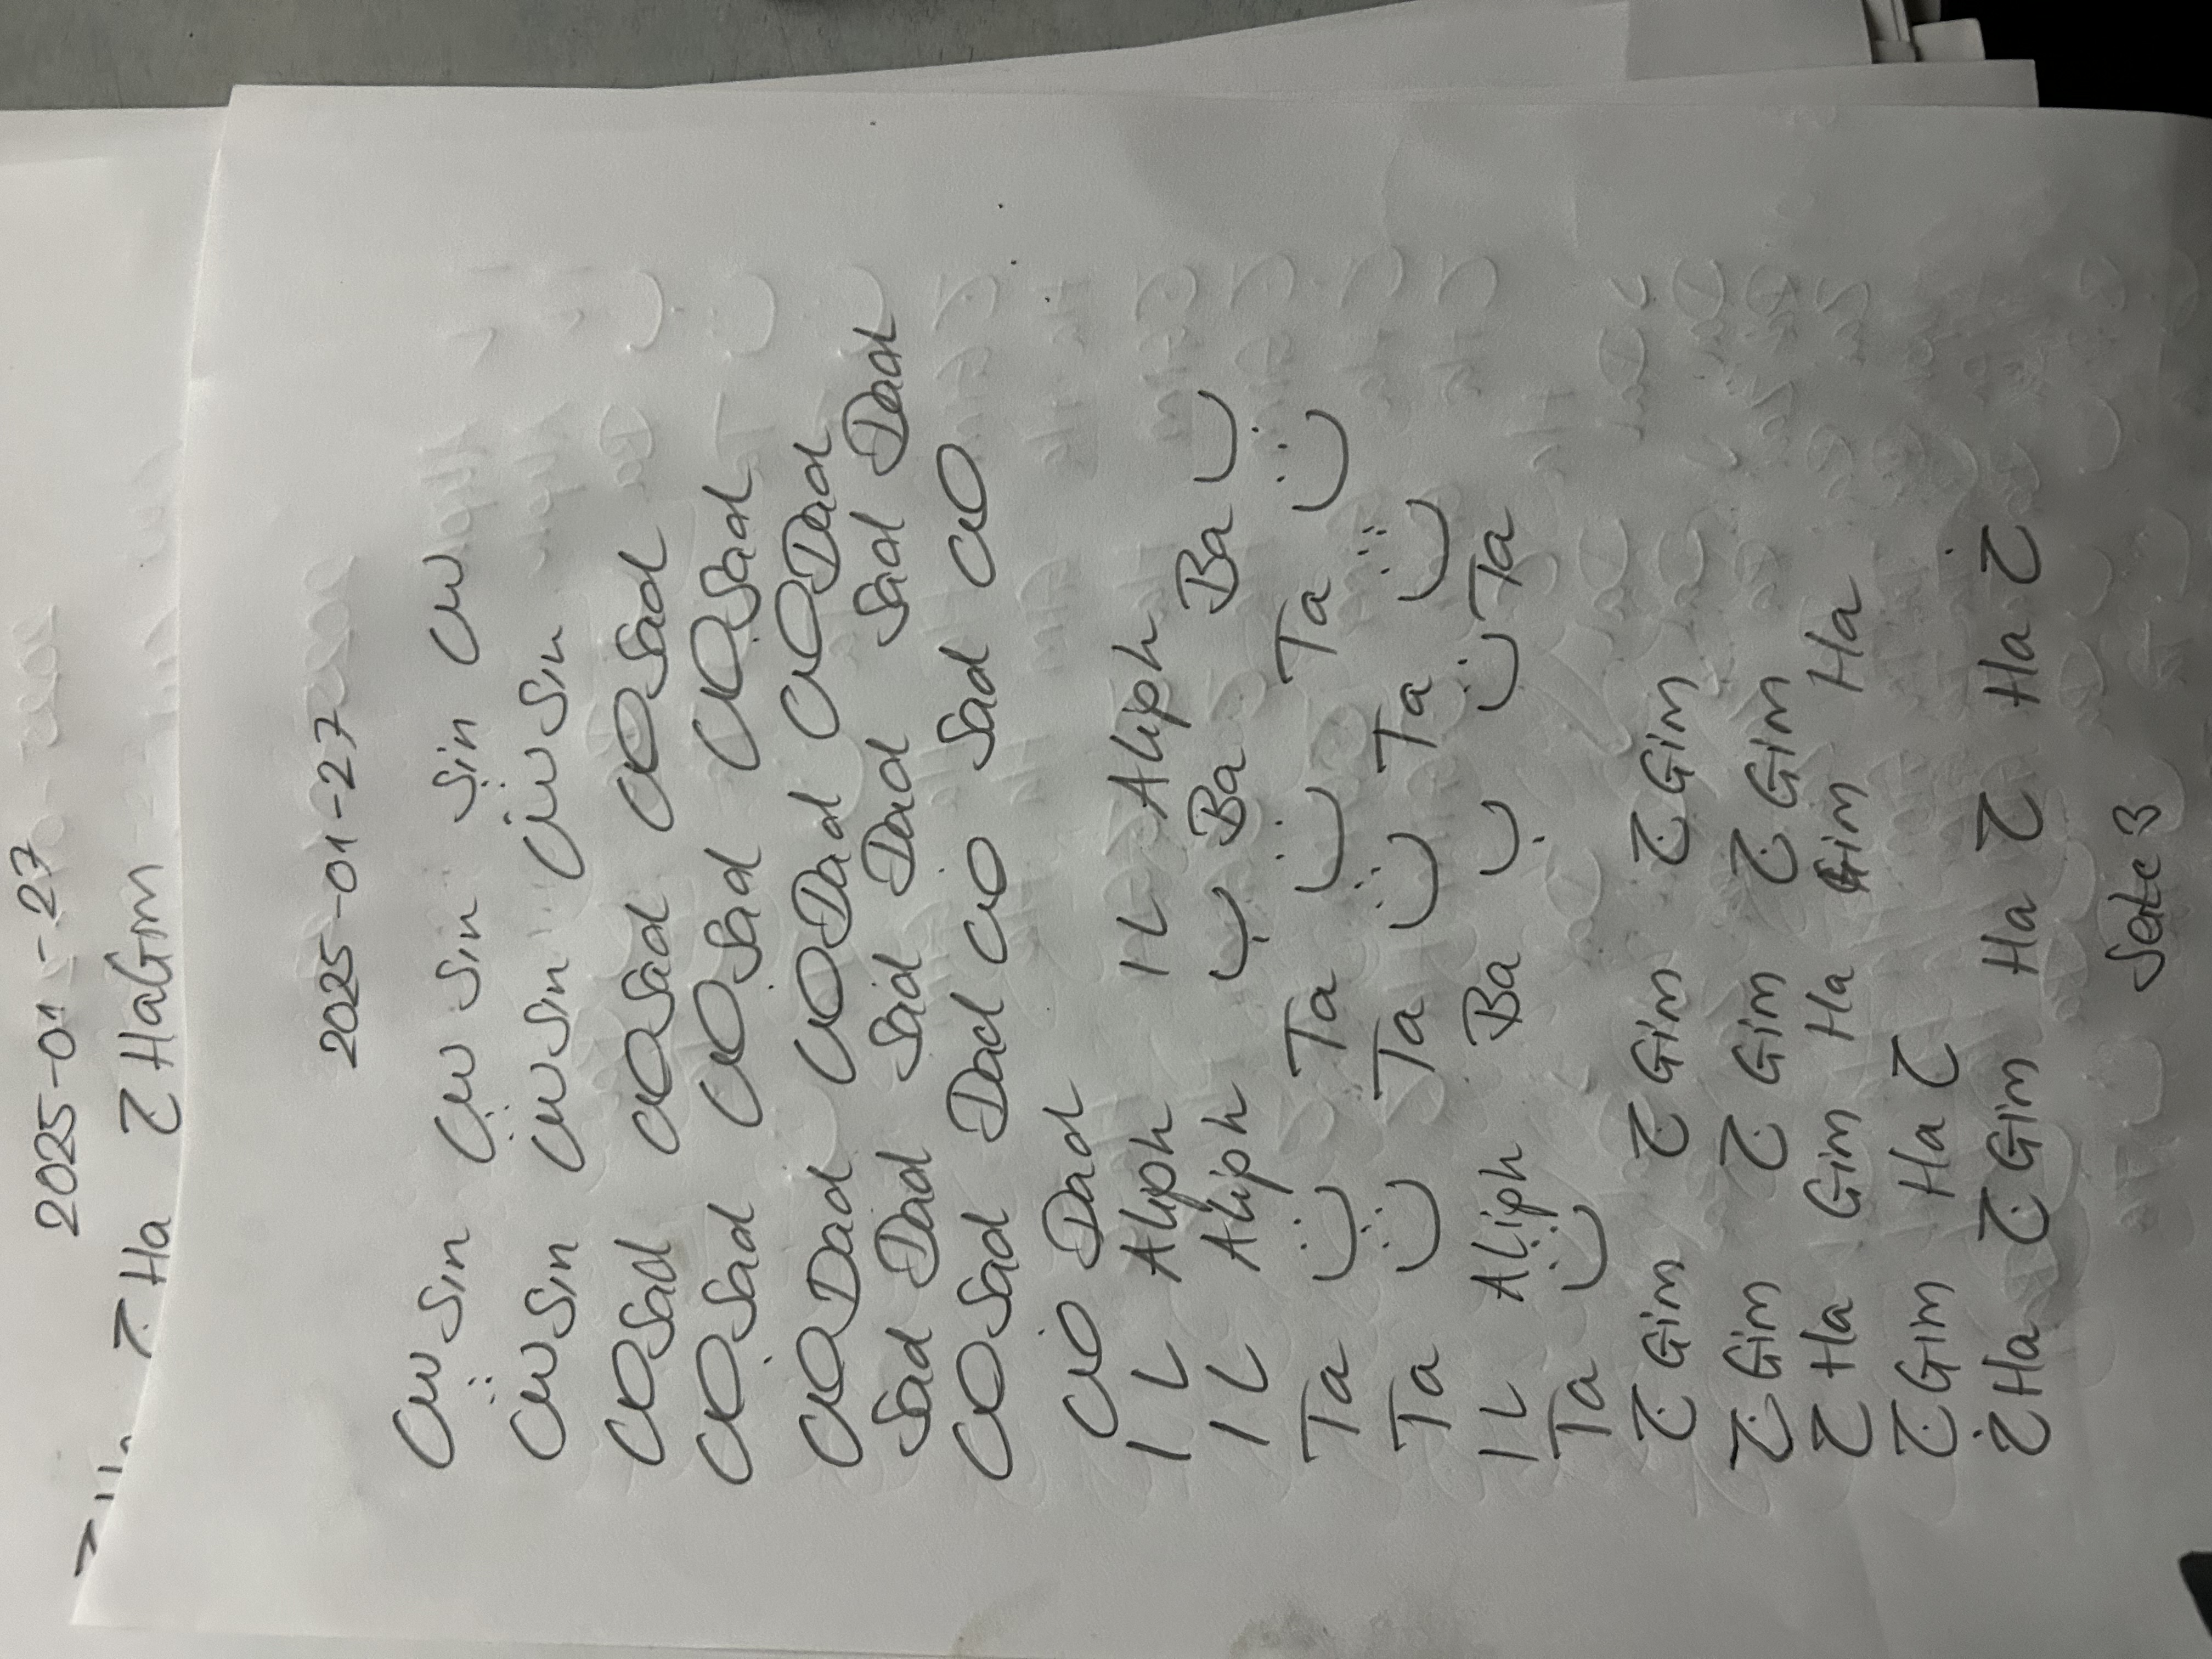 2025-01-27
ح Ha ج HaGim
2025-01-27
س Sin س Sin Sin س
ش Sin ش Sin ش Sin
ص Sad ص Sad ص Sad
ص Sad ص Sad ص Sad
ض Dad ض Dad ض Dad
Sad Dad Sad Dad Sad Dad
ص Sad Dad ض Sad ص
ض Dad
ا L Aliph ا L Aliph
ا L Aliph ب Ba Ba ب
Ta ت Ta ت Ta ت
Ta ث Ta ث Ta ث
ا L Aliph Ba ب ت Ta
Ta ث
ج Gim ج Gim ج Gim
ج Gim ج Gim ج Gim
ح Ha Gim Ha Gim Ha
ج Gim Ha ح
خ Ha ج Gim Ha ح Ha خ
Seite 3